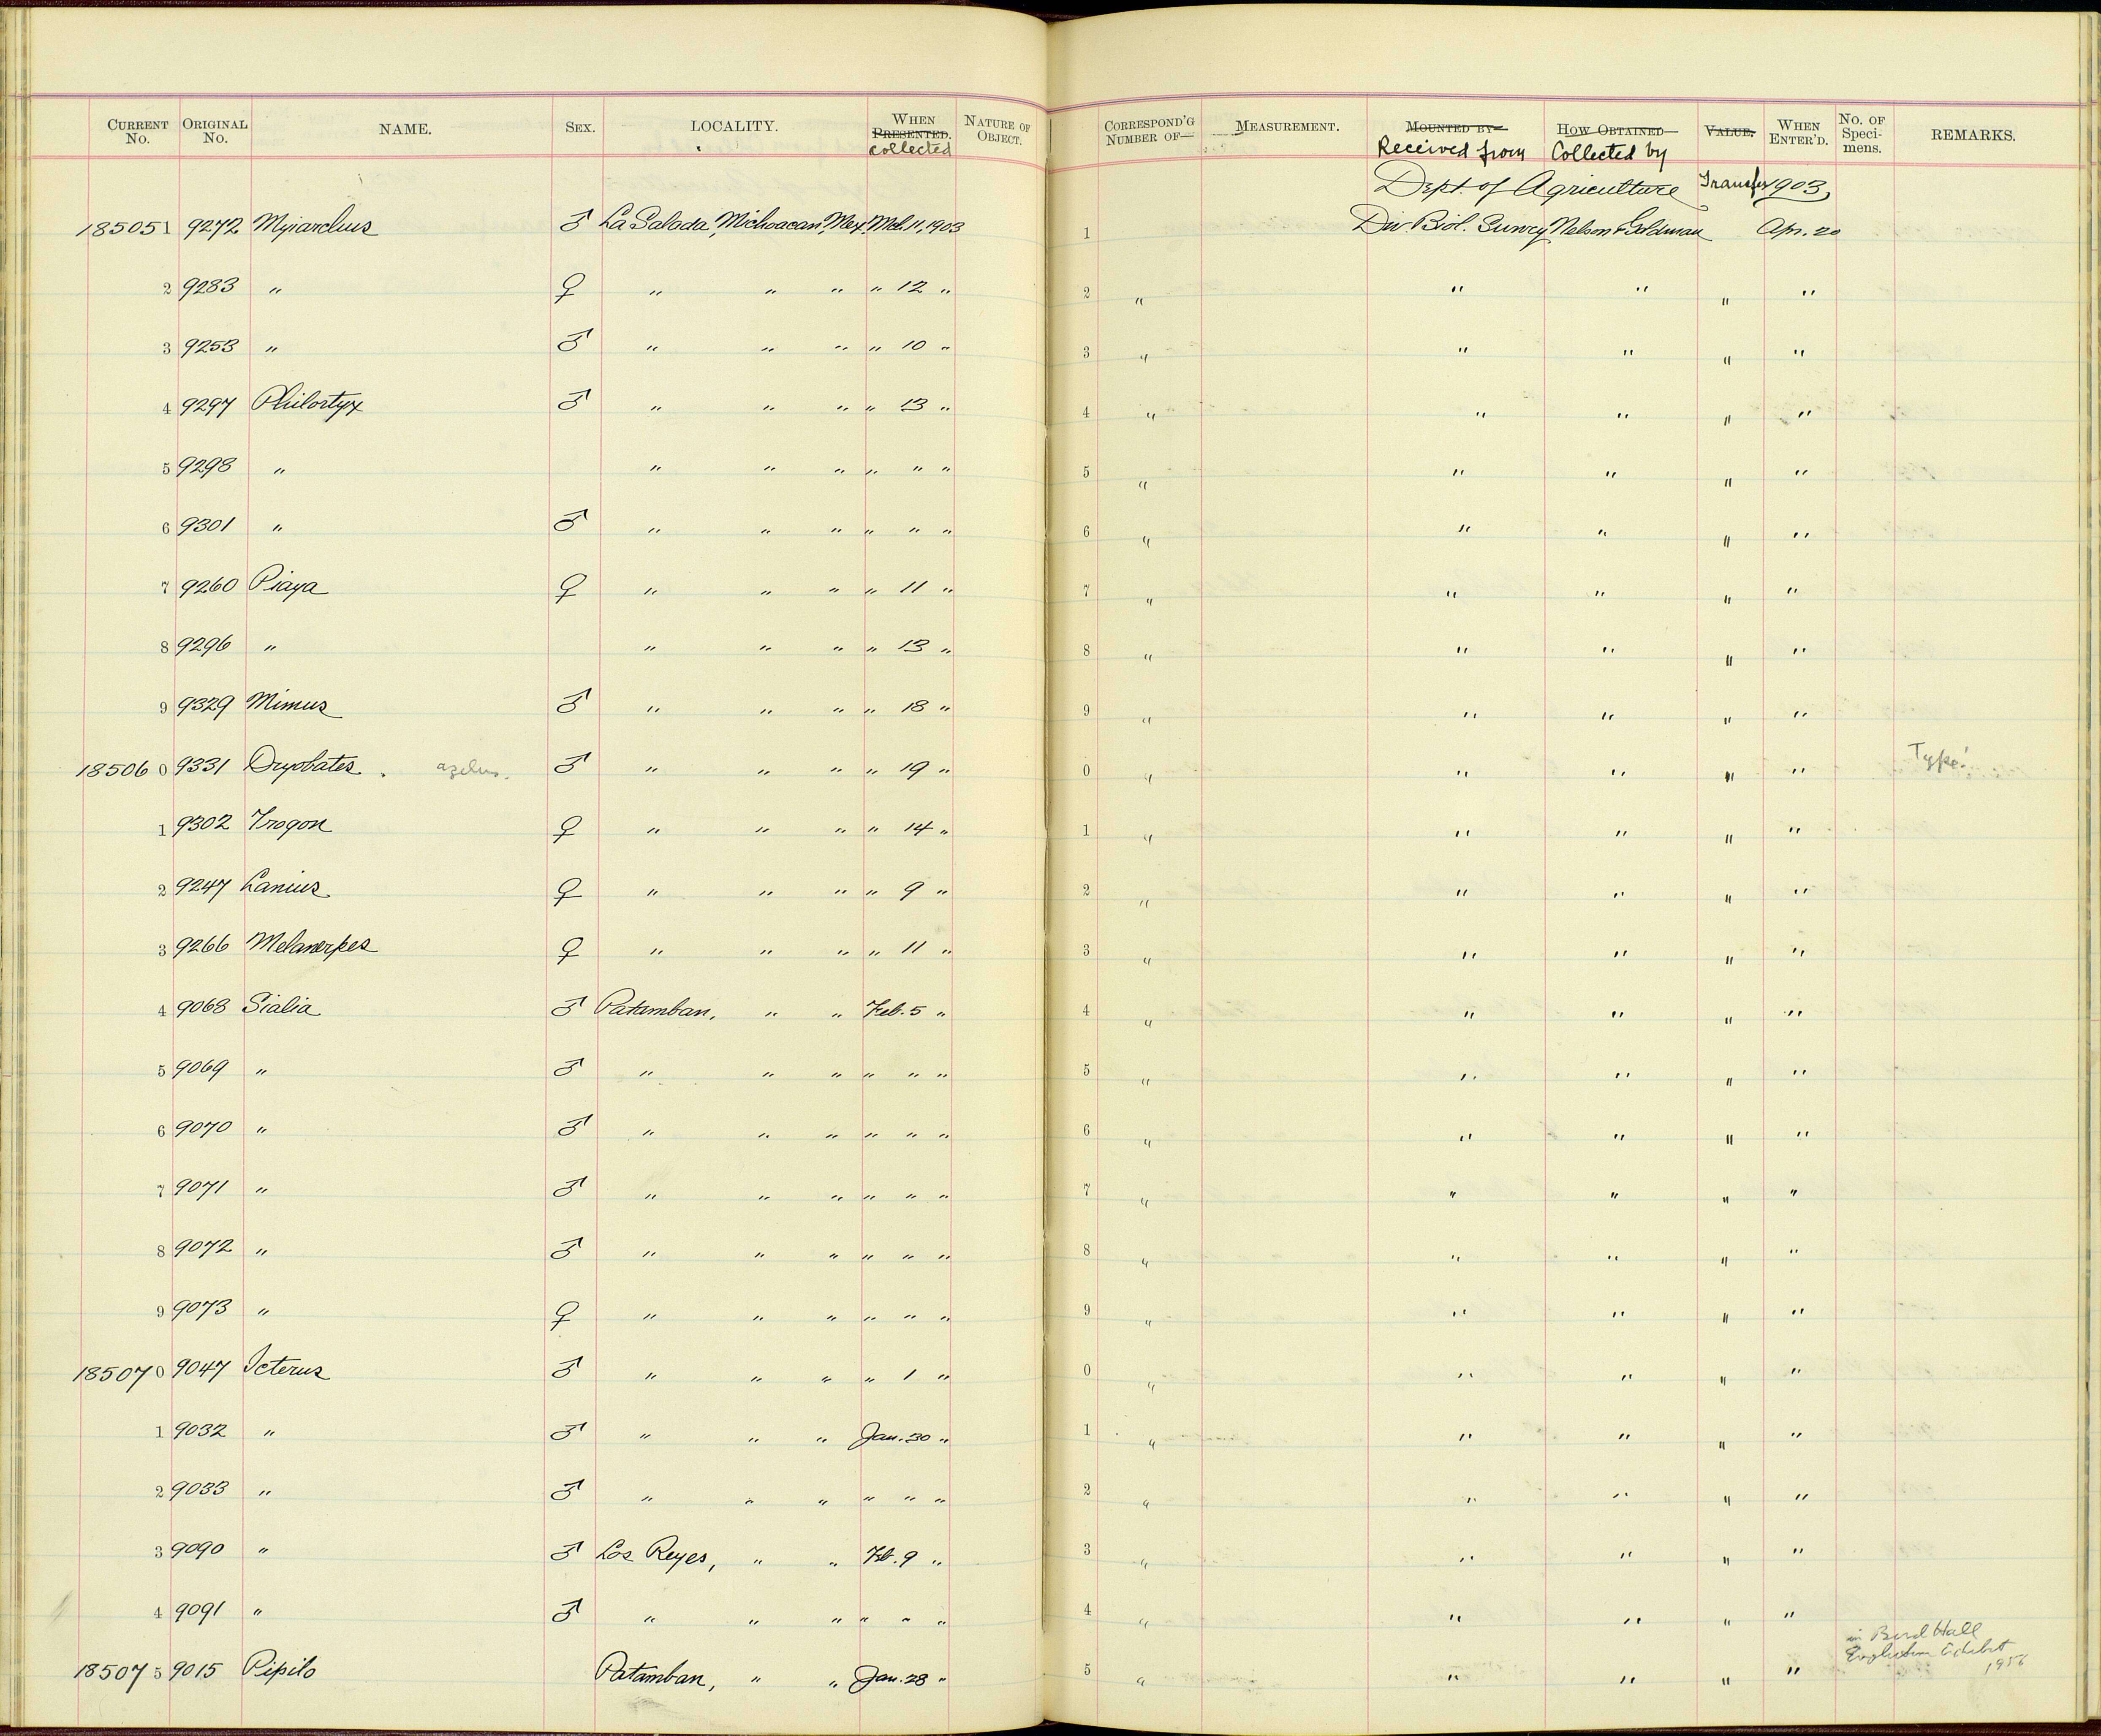 CURRENT No. ORIGINAL No. NAME. SEX. LOCALITY. WHEN PRESENTED. collected NATURE OF OBJECT. CORRESPOND'G NUMBER OF— MEASUREMENT. MOUNTED BY— Received from HOW OBTAINED— Collected by VALUE. WHEN ENTER'D. No. OF Speci- mens. REMARKS.
Dept. of Agriculture Transfer 1903
185051 9272 Myiarchus ♂ La Salada, Michoacan, Mex. Mch. 11, 1903 1 Div. Biol. Survey Nelson & Goldman Apr. 20
2 9283 " ♀ " " " " 12 " 2 " " " " "
3 9253 " ♂ " " " " 10 " 3 " " " " "
4 9297 Philortyx ♂ " " " " 13 " 4 " " " " "
5 9298 " " " " " " " 5 " " " " "
6 9301 " ♂ " " " " " " 6 " " " " "
7 9260 Piaya ♀ " " " " 11 " 7 " " " " "
8 9296 " " " " " 13 " 8 " " " " "
9 9329 Mimus ♂ " " " " 18 " 9 " " " " "
185060 9331 Dryobates . azelus. ♂ " " " " 19 " 0 " " " " " Type!
1 9302 Trogon ♀ " " " " 14 " 1 " " " " "
2 9247 Lanius ♀ " " " " 9 " 2 " " " " "
3 9266 Melanerpes ♀ " " " " 11 " 3 " " " " "
4 9068 Sialia ♂ Patamban, " " Feb. 5 " 4 " " " " "
5 9069 " ♂ " " " " " " 5 " " " " "
6 9070 " ♂ " " " " " " 6 " " " " "
7 9071 " ♂ " " " " " " 7 " " " " "
8 9072 " ♂ " " " " " " 8 " " " " "
9 9073 " ♀ " " " " " " 9 " " " " "
185070 9047 Icterus ♂ " " " " 1 " 0 " " " " "
1 9032 " ♂ " " " Jan. 30 " 1 " " " " "
2 9033 " ♂ " " " " " " 2 " " " " "
3 9090 " ♂ Los Reyes, " " Feb. 9 " 3 " " " " "
4 9091 " ♂ " " " " " " 4 " " " " "
185075 9015 Pipilo Patamban, " " Jan. 28 " 5 " " " " " in Bird Hall
Evolution Exhibit
1956